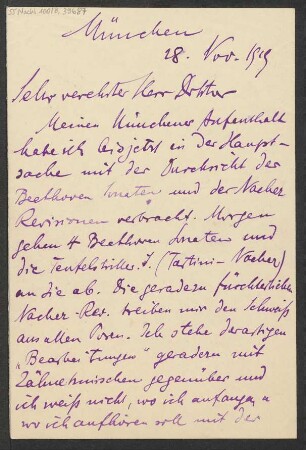 55 Nachl 100/A, 39687
München
28. Nov. 1919
Sehr verehrter Herr Doktor
Meinen Münchener Aufenthalt
habe ich bis jetzt in der Haupt-
sache mit der Durchsicht der
Beethoven Sonaten und der Nachez
Revisionen verbracht. Morgen
gehen 4 Beethoven Sonaten und
die Teufelstriller S. (Tartini-Nachez)
an die ab. Die geradezu fürchterlichen
Nachez-Rev. treiben mir den Schweiß
aus allen Poren. Ich stehe derartigen
„Bearbeitungen" geradezu mit
Zähneknirschen gegenüber und
ich weiß nicht, wo ich anfangen u
wo ich aufhören soll mit der